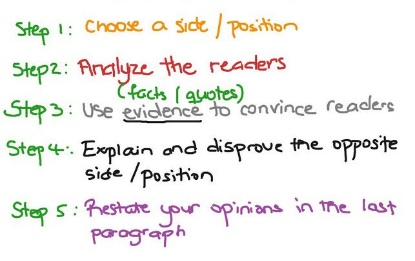 Step 1: Choose a side / position
Step2: Analyze the readers
(facts / quotes)
Step 3: Use evidence to convince readers
Step 4: Explain and disprove the opposite
side / position
Step 5: Restate your opinians in the last
paragraph